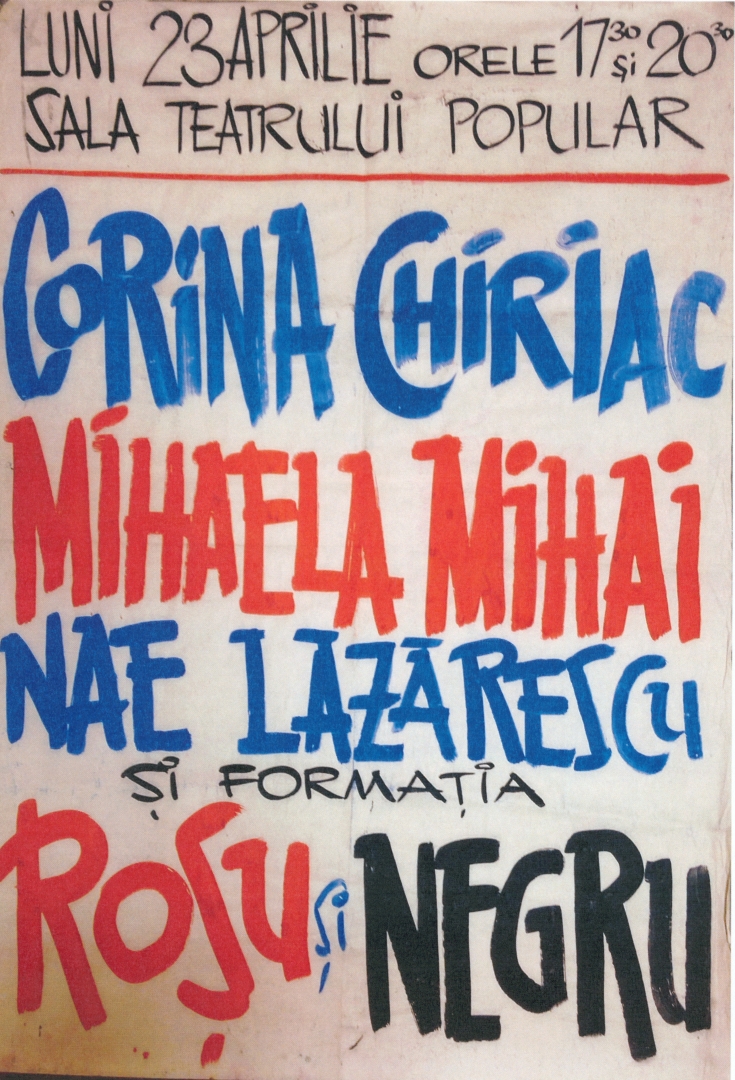 LUNI 23 APRILIE ORELE 17³⁰ și 20³⁰
SALA TEATRULUI POPULAR
CORINA CHIRIAC
MIHAELA MIHAI
NAE LAZĂRESCU
ȘI FORMAȚIA
ROȘU și NEGRU